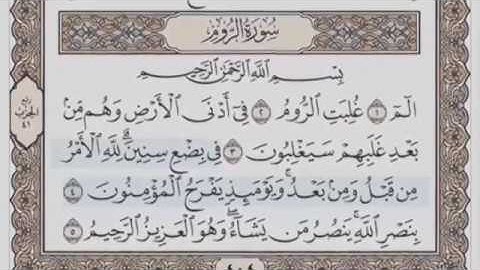 سُورَةُ الرُّومِ
بِسْمِ اللَّهِ الرَّحْمَٰنِ الرَّحِيمِ
الٓمٓ ۝١ غُلِبَتِ الرُّومُ ۝٢ فِىٓ أَدْنَى الْأَرْضِ وَهُم مِّنۢ
بَعْدِ غَلَبِهِمْ سَيَغْلِبُونَ ۝٣ فِى بِضْعِ سِنِينَ ۗ لِلَّهِ الْأَمْرُ
مِن قَبْلُ وَمِنۢ بَعْدُ ۚ وَيَوْمَئِذٍ يَفْرَحُ الْمُؤْمِنُونَ ۝٤
بِنَصْرِ اللَّهِ ۚ يَنصُرُ مَن يَشَآءُ ۖ وَهُوَ الْعَزِيزُ الرَّحِيمُ ۝٥
ربع
الحزب
٤١
٤٠٤